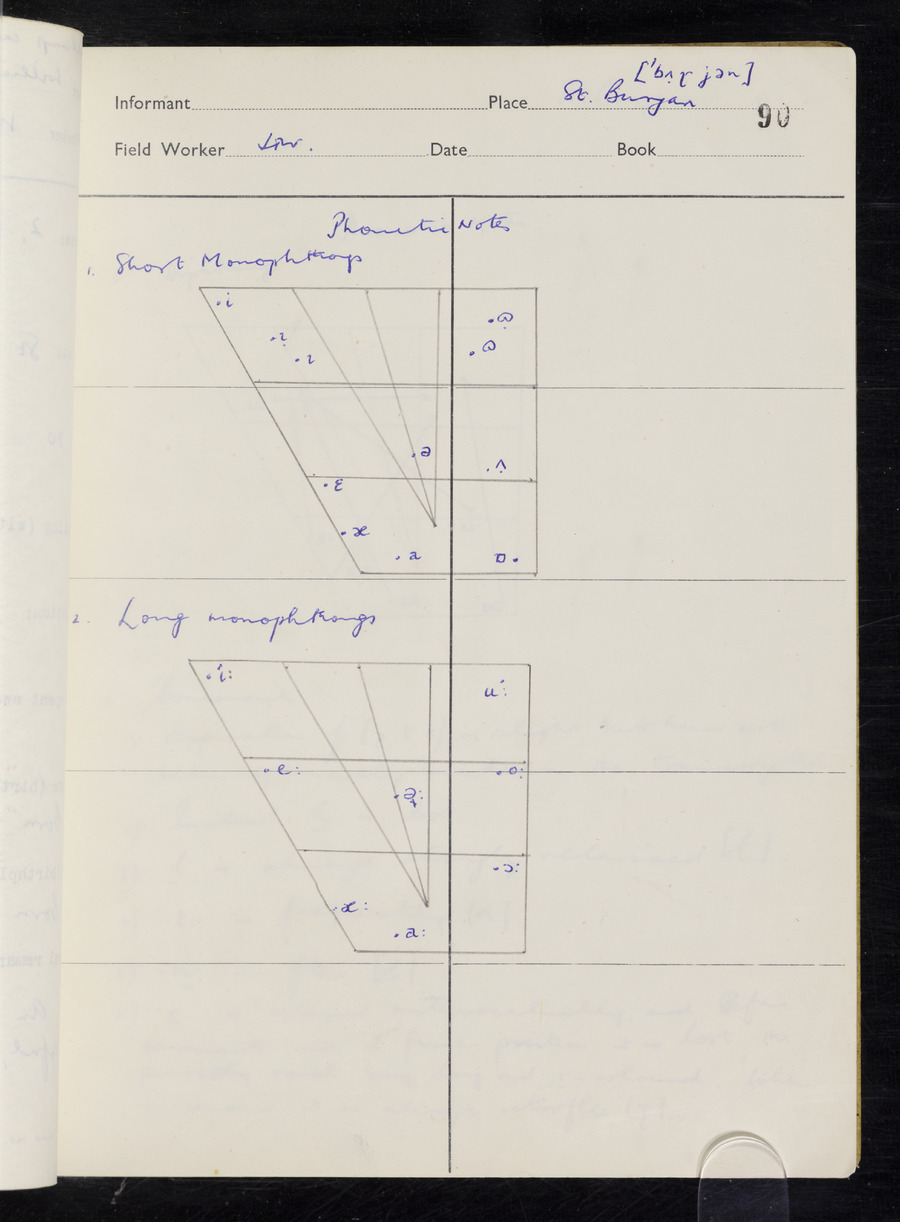 ['bʌɽjən]
Informant Place St. Buryan
90
Field Worker Date Book
Phonetic Notes
1. Short Monophthongs
.i
.ɷ̣
.ɩ̣
.ɷ
.ɩ
.ə
.ʌ
.ɛ
.æ
.a ɒ.
2. Long monophthongs
.i: u:
.e: .o:
.ə:
.ɔ:
.æ:
.a: